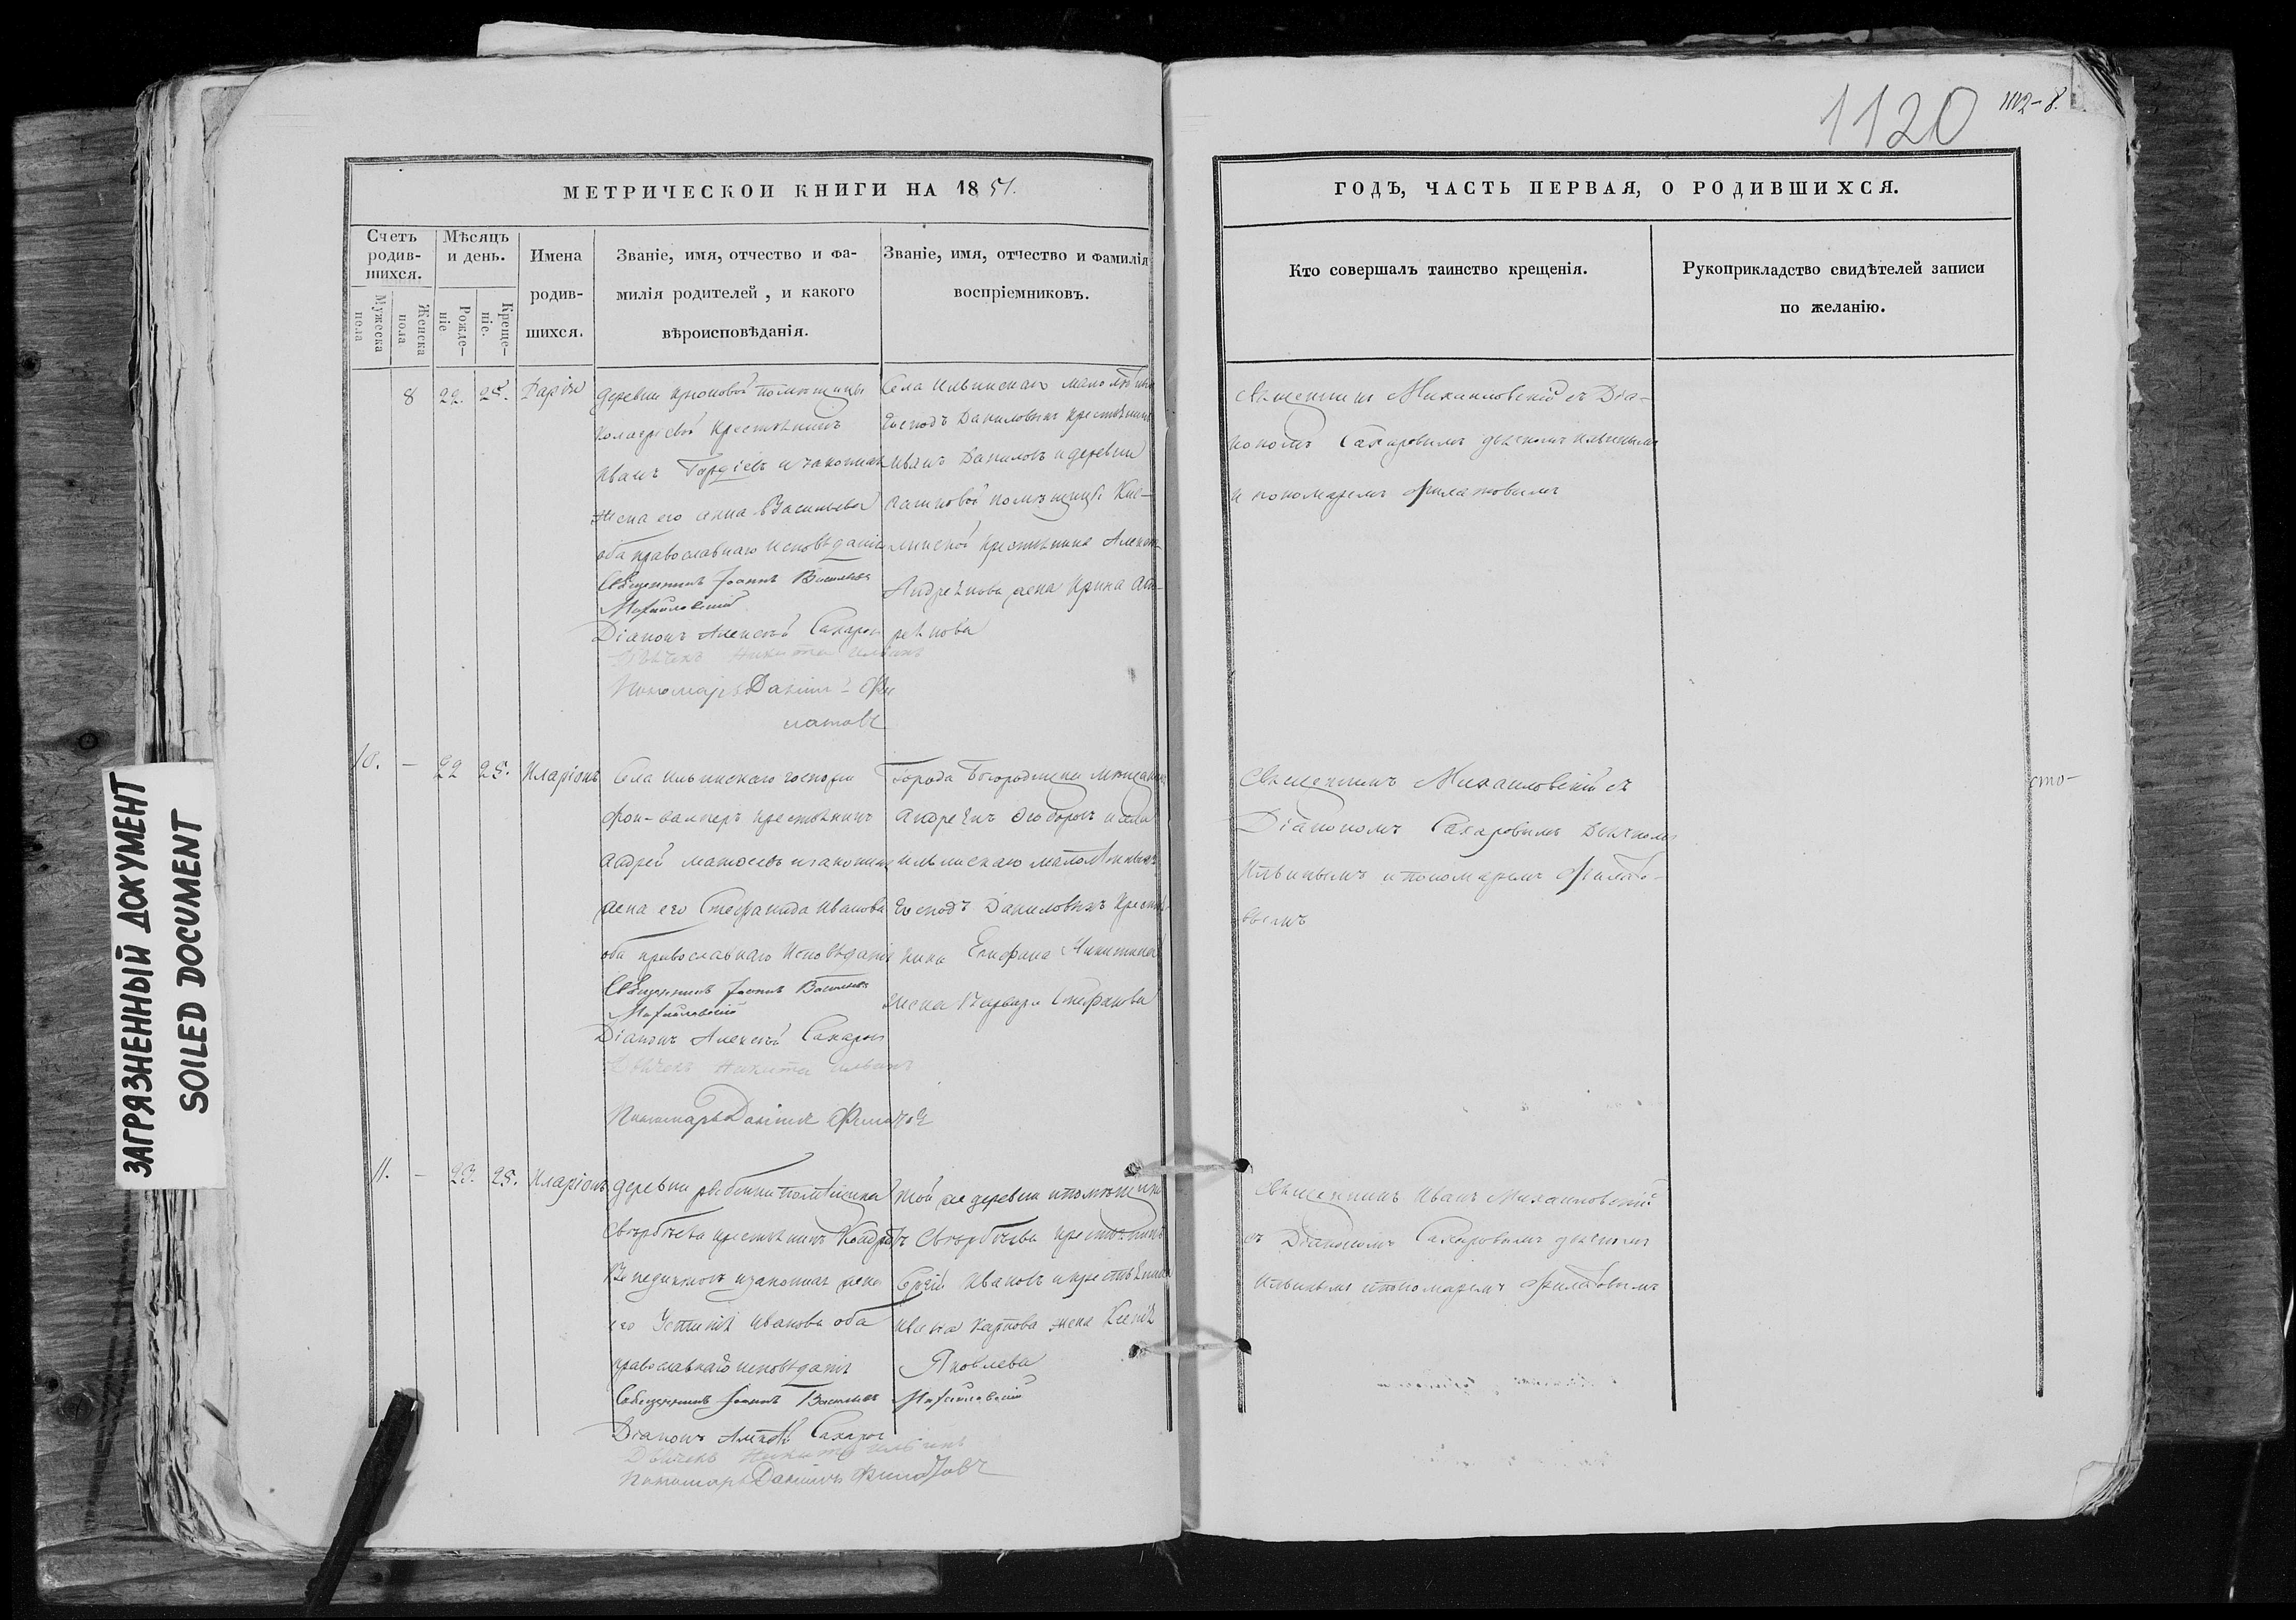 1120
1112-8.
МЕТРИЧЕСКОЙ КНИГИ НА 1851.
Счетъ родив-шихся.
Мужеска пола
Женска пола
Мѣсяцъ и день.
Рожде-ніе
Креще-ніе.
Имена
родив-
шихся.
Званіе, имя, отчество и фа-
милія родителей, и какого
вѣроисповѣданія.
Званіе, имя, отчество и фамилія
воспріемниковъ.
8 22. 25. Дарія
деревни помѣщицы
крестьянинъ
Иванъ Гордіевъ и законная
жена его Анна Васильева
оба православнаго исповѣданія
Священникъ Іоаннъ Васильевъ
Михайловскій
Діаконъ Алексѣй Сахаровъ
Дьячекъ Никита Ильинъ
Пономарь Даніилъ Фи
латовъ
Села Ильинскаго малолѣтныхъ
Господъ Даниловыхъ крестьянинъ
Иванъ Даниловъ и деревни
помѣщицы
крестьянина
Андреянова жена Ирина
10. — 22 25. Иларіонъ
Села Ильинскаго господина
фон- крестьянинъ
Андрей и законная
жена его Стефанида Иванова
оба православнаго исповѣданія
Священникъ Іоаннъ Васильевъ
Михайловскій
Діаконъ Алексѣй Сахаровъ
Дьячекъ Никита Ильинъ
Пономарь Даніилъ Филатовъ
Города Богородицка мѣщанинъ
Андреичь и села
Ильинскаго малолѣтныхъ
Господъ Даниловыхъ крестья-
нина Епифана Никитина
жена Варвара Стефанова
11. — 23. 25. Иларіонъ
деревни помѣщика
Свербѣева крестьянинъ
и законная жена
его Устинія Иванова оба
православнаго исповѣданія
Священникъ Іоаннъ Васильевъ Михайловскій
Діаконъ Алексѣй Сахаровъ
Дьячекъ Никита Ильинъ
Пономарь Даніилъ Филатовъ
той же деревни и помѣщика
Свербѣева крестьянинъ
Ивановъ и крестьянина
Ивана Карпова жена
Яковлева
ГОДЪ, ЧАСТЬ ПЕРВАЯ, О РОДИВШИХСЯ.
Кто совершалъ таинство крещенія.
Рукоприкладство свидѣтелей записи
по желанію.
Священникъ Михайловскій съ Діа-
кономъ Сахаровымъ дьячкомъ Ильинымъ
и пономаремъ Филатовымъ
Священникъ Михайловскій съ
Діакономъ Сахаровымъ Дьячкомъ
Ильинымъ и пономаремъ Филато-
вымъ
сто-
Священникъ Иванъ Михайловскій
съ Діакономъ Сахаровымъ дьячкомъ
Ильинымъ и пономаремъ Филатовымъ
ЗАГРЯЗНЕННЫЙ ДОКУМЕНТ
SOILED DOCUMENT